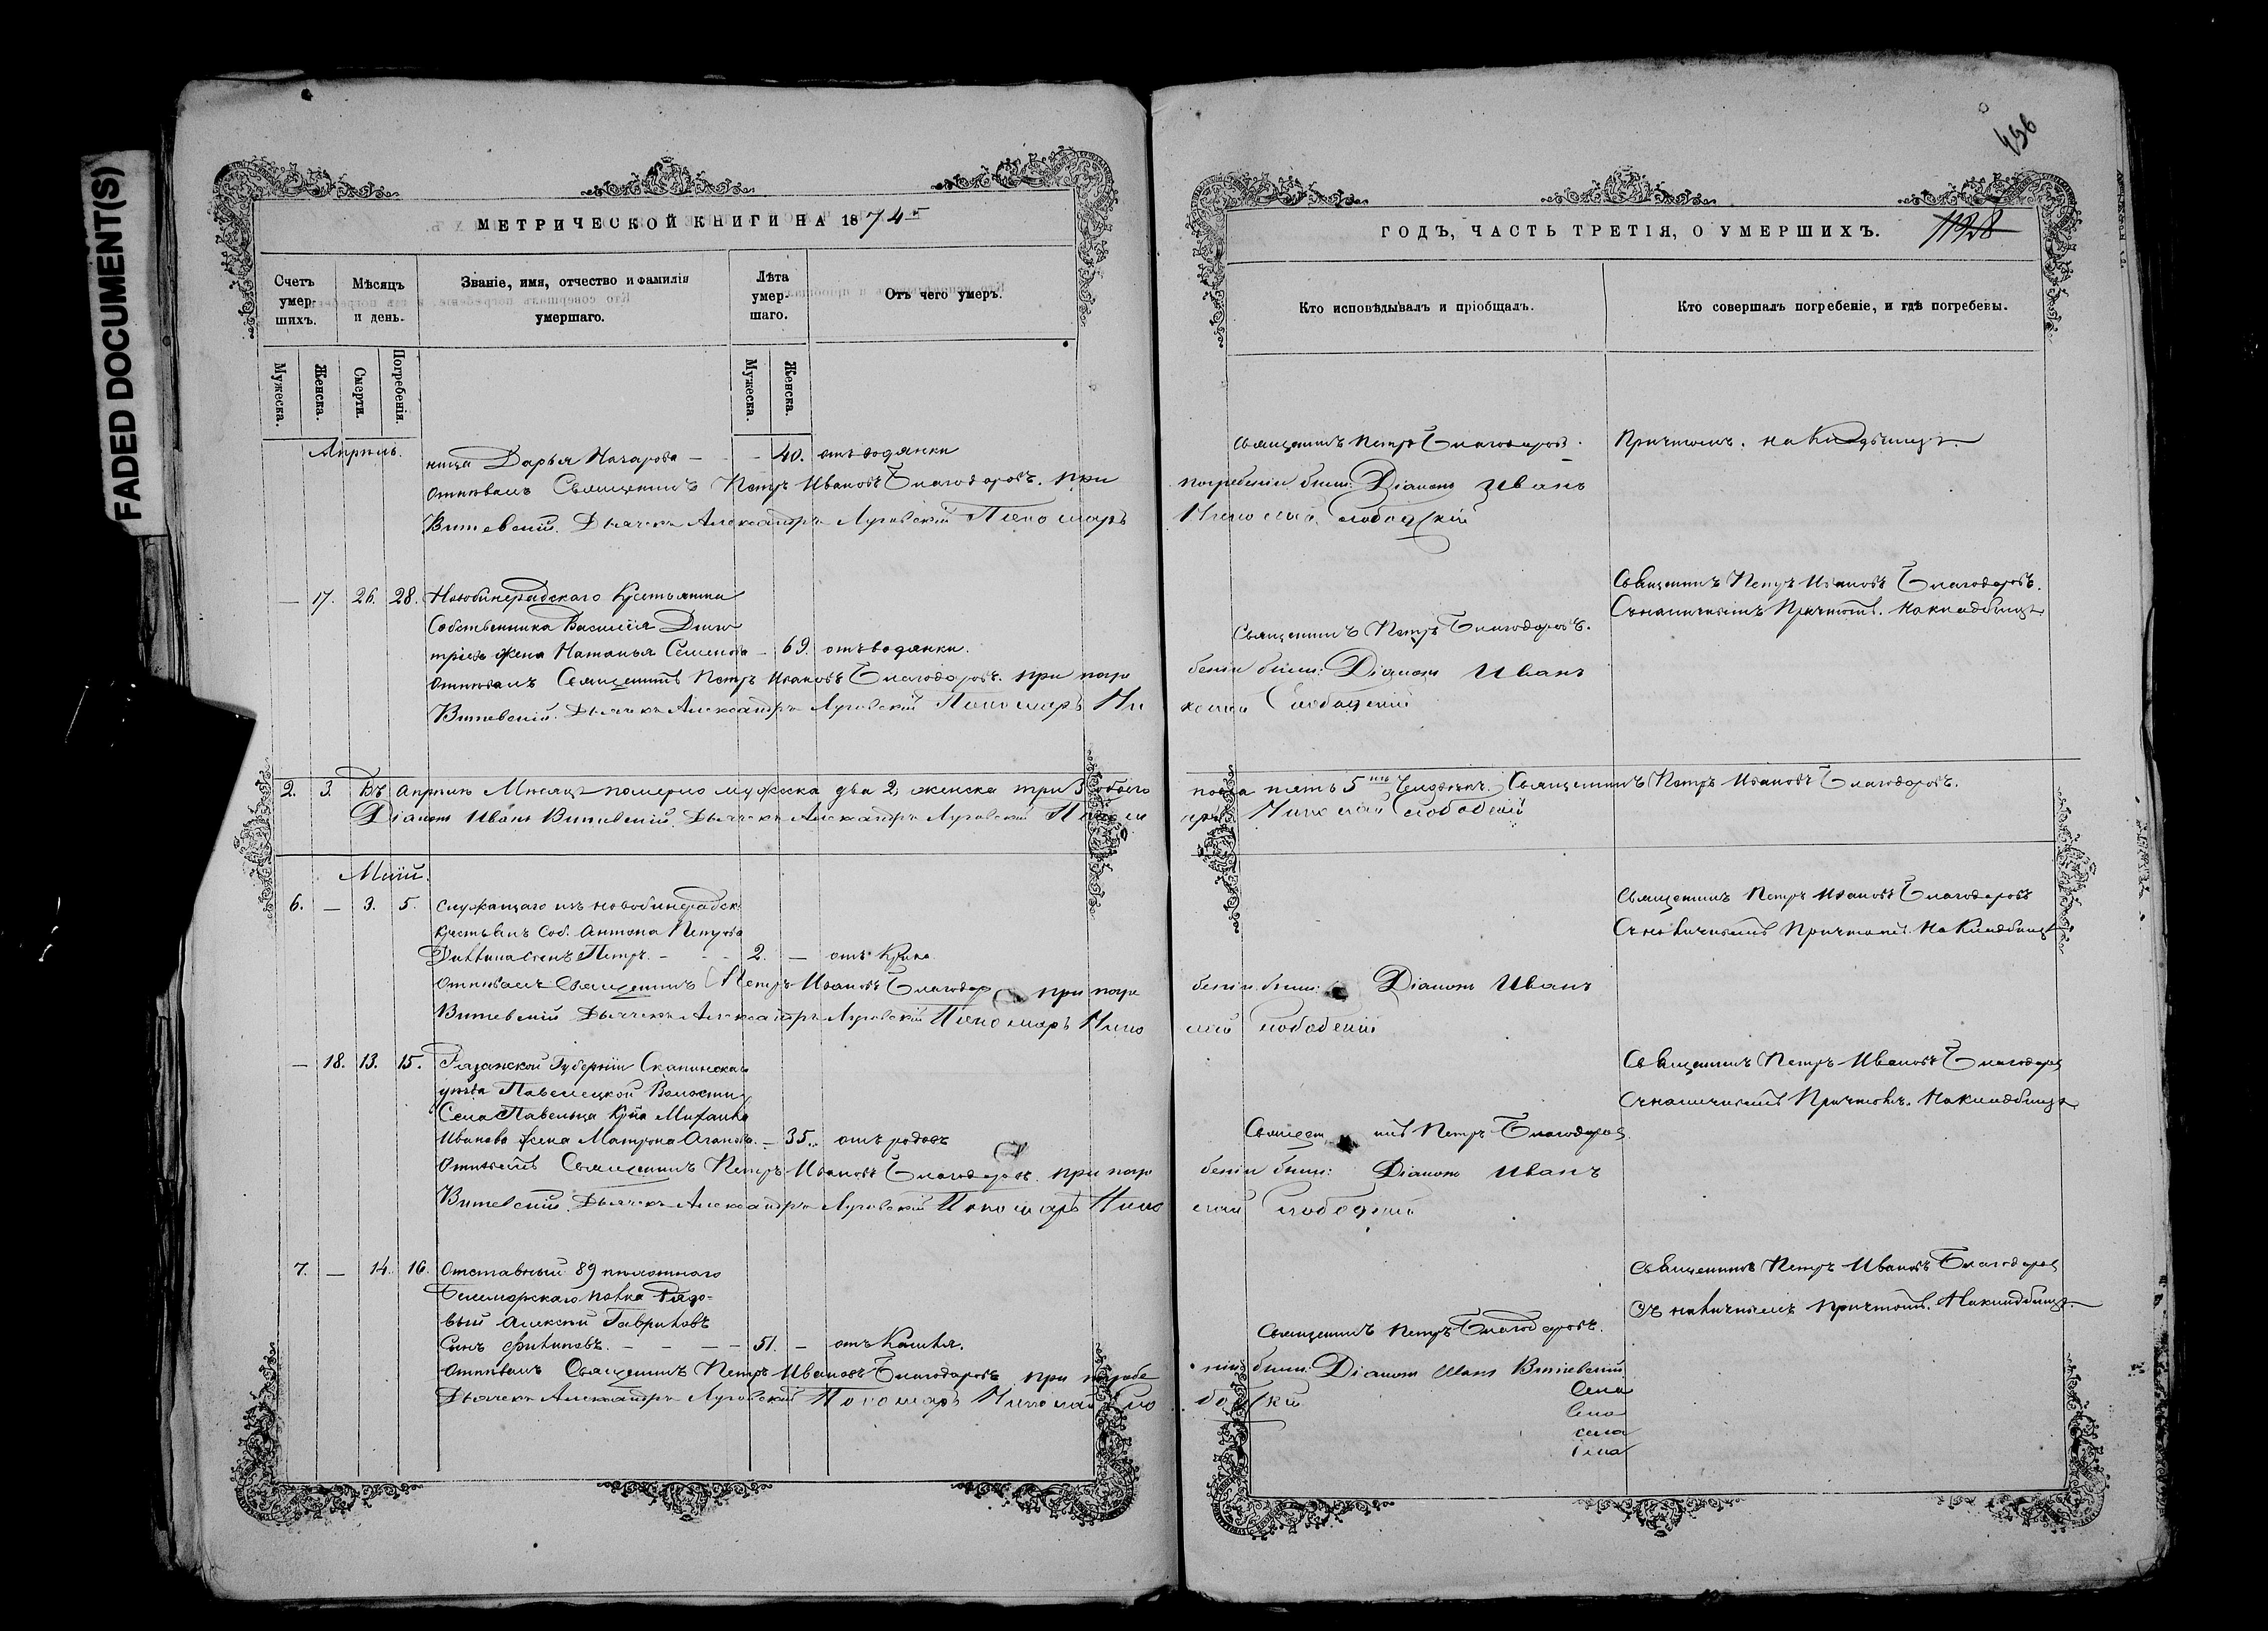 FADED DOCUMENT(S)
МЕТРИЧЕСКОЙ КНИГИ НА 1874й
Счетъ умер-шихъ.
Мѣсяцъ и день.
Званіе, имя, отчество и фамилія умершаго.
Лѣта умер-шаго.
Отъ чего умеръ.
Мужеска.
Женска.
Смерти.
Погребенія.
Мужеска.
Женска.
Апрѣль.
ница Дарья Назарова - - 40. отъ водянки
Отпѣвалъ Священникъ Петръ Ивановъ Благодаровъ. при
Витевскій. Дьячекъ Александръ Луговскій Пономарь
— 17. 26. 28. Крестьянина
Собственника Василія Дми
тріева жена Наталья Семенова - 69. отъ водянки.
Отпѣвалъ Священникъ Петръ Ивановъ Благодаровъ. при погре
Витевскій. Дьячекъ Александръ Луговскій Пономарь Ни
2. 3. Въ Апрѣлѣ Мѣсяцѣ померло мужска два 2, женска три 3 обоего
Діаконъ Иванъ Витевскій. Дьячекъ Александръ Луговскій Поном
Маій.
6. — 3. 5. Служащаго изъ
Крестьянъ Соб. Антона Петрова
сынъ Петръ. - - - 2. — отъ Крика
Отпѣвалъ Священникъ Петръ Ивановъ Благодар при погре
Витевскій Дьячекъ Александръ Луговскій Пономарь Нико
— 18. 13. 15. Рязанской Губерніи Скапинскаго
уѣзда Павелецкой Волости
Села Павельца Кр-на Михаила
Иванова жена Матрона - 35. отъ родовъ
Отпѣвалъ Священникъ Петръ Ивановъ Благодаровъ. при погре
Витевскій. Дьячекъ Александръ Луговскій Пономарь Нико
7. — 14. 16. Отставный 89 пѣхотнаго
Беломорскаго полка Рядо-
вый Алексѣй Гавриловъ
Сынъ Филиповъ. - - - - 51. - отъ Кашля.
Отпѣвалъ Священникъ Петръ Ивановъ Благодаровъ при погребе
Дьячекъ Александръ Луговскій Пономарь Николай Сло
436
ГОДЪ, ЧАСТЬ ТРЕТІЯ, О УМЕРШИХЪ.
1128
Кто исповѣдывалъ и пріобщалъ.
Кто совершалъ погребеніе, и гдѣ погребены.
Священникъ Петръ Благодаровъ.
Причтомъ. на Кладбищѣ.
погребеніи были: Діаконъ Иванъ
Николай Слободскій
Священникъ Петръ Ивановъ Благодаровъ.
Съ наличнымъ Причтомъ. На кладбищѣ
Священникъ Петръ Благодаровъ.
беніи были: Діаконъ Иванъ
колай Слободскій
пола пять 5ть Человѣкъ. Священникъ Петръ Ивановъ Благодаровъ.
Николай Слободскій
Священникъ Петръ Ивановъ Благодаровъ
Съ наличнымъ Причтомъ. На Кладбищѣ
беніи были: Діаконъ Иванъ
лай Слободскій
Священникъ Петръ Ивановъ Благодаров
Съ наличнымъ Причтомъ. На кладбищѣ
Священникъ Петръ Благодаров
беніи были: Діаконъ Иванъ
лай Слободскій
Священникъ Петръ Ивановъ Благодаров
Съ наличнымъ причтомъ. На кладбищѣ.
Священникъ Петръ Благодаровъ.
ніи были: Діаконъ Иванъ Витевскій
бодскій